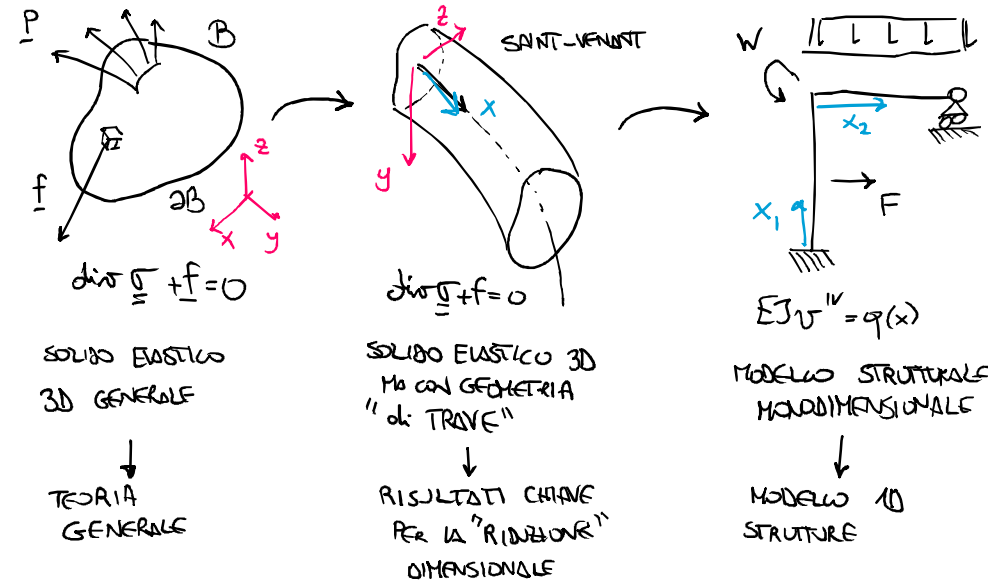 p
B
f
∂B
z
x
y
div σ + f = 0
SOLIDO ELASTICO
3D GENERALE
TEORIA
GENERALE
SAINT-VENANT
z
x
y
div σ + f = 0
SOLIDO ELASTICO 3D
MA CON GEOMETRIA
"di TRAVE"
RISULTATI CHIAVE
PER LA "RIDUZIONE"
DIMENSIONALE
W
x₂
F
x₁
EJv^IV = q(x)
MODELLO STRUTTURALE
MONODIMENSIONALE
MODELLO 1D
STRUTTURE